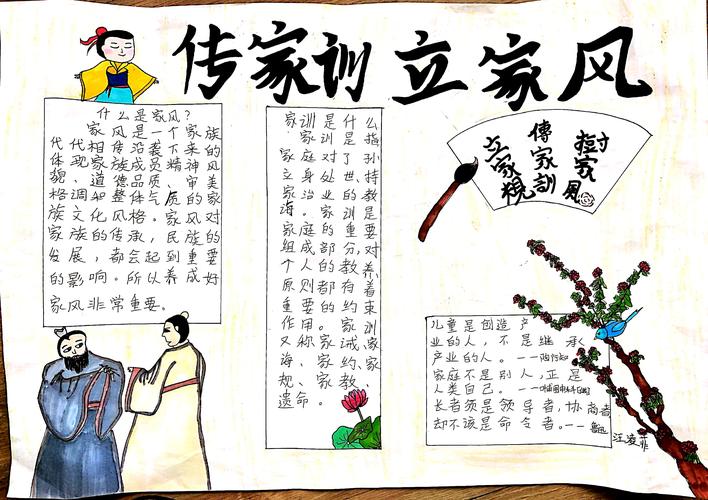 传家训立家风
什么是家风？
家风是一个家族
代代相传沿袭下来的
体现家族成员精神风
貌、道德品质、审美
格调和整体气质的家
族文化风格。家风对
家族的传承，民族的
发展，都会起到重要
的影响。所以养成好
家风非常重要。
家训是什么
家训是指
家庭对子孙
立身处世、持
家治业的教
诲。家训是
家庭的重要
组成部分，对
个人的教养、
原则都有着
重要的约束
作用。家训
又称家诫、家
诲、家约、家
规、家教、
遗命。
立家规
傳家訓
樹家風
儿童是创造产
业的人，不是继承
产业的人。——陶行知
家庭不是别人，正是
人类自己。
长者须是领导者，协商者
却不该是命令者。——鲁迅
汪凌菲